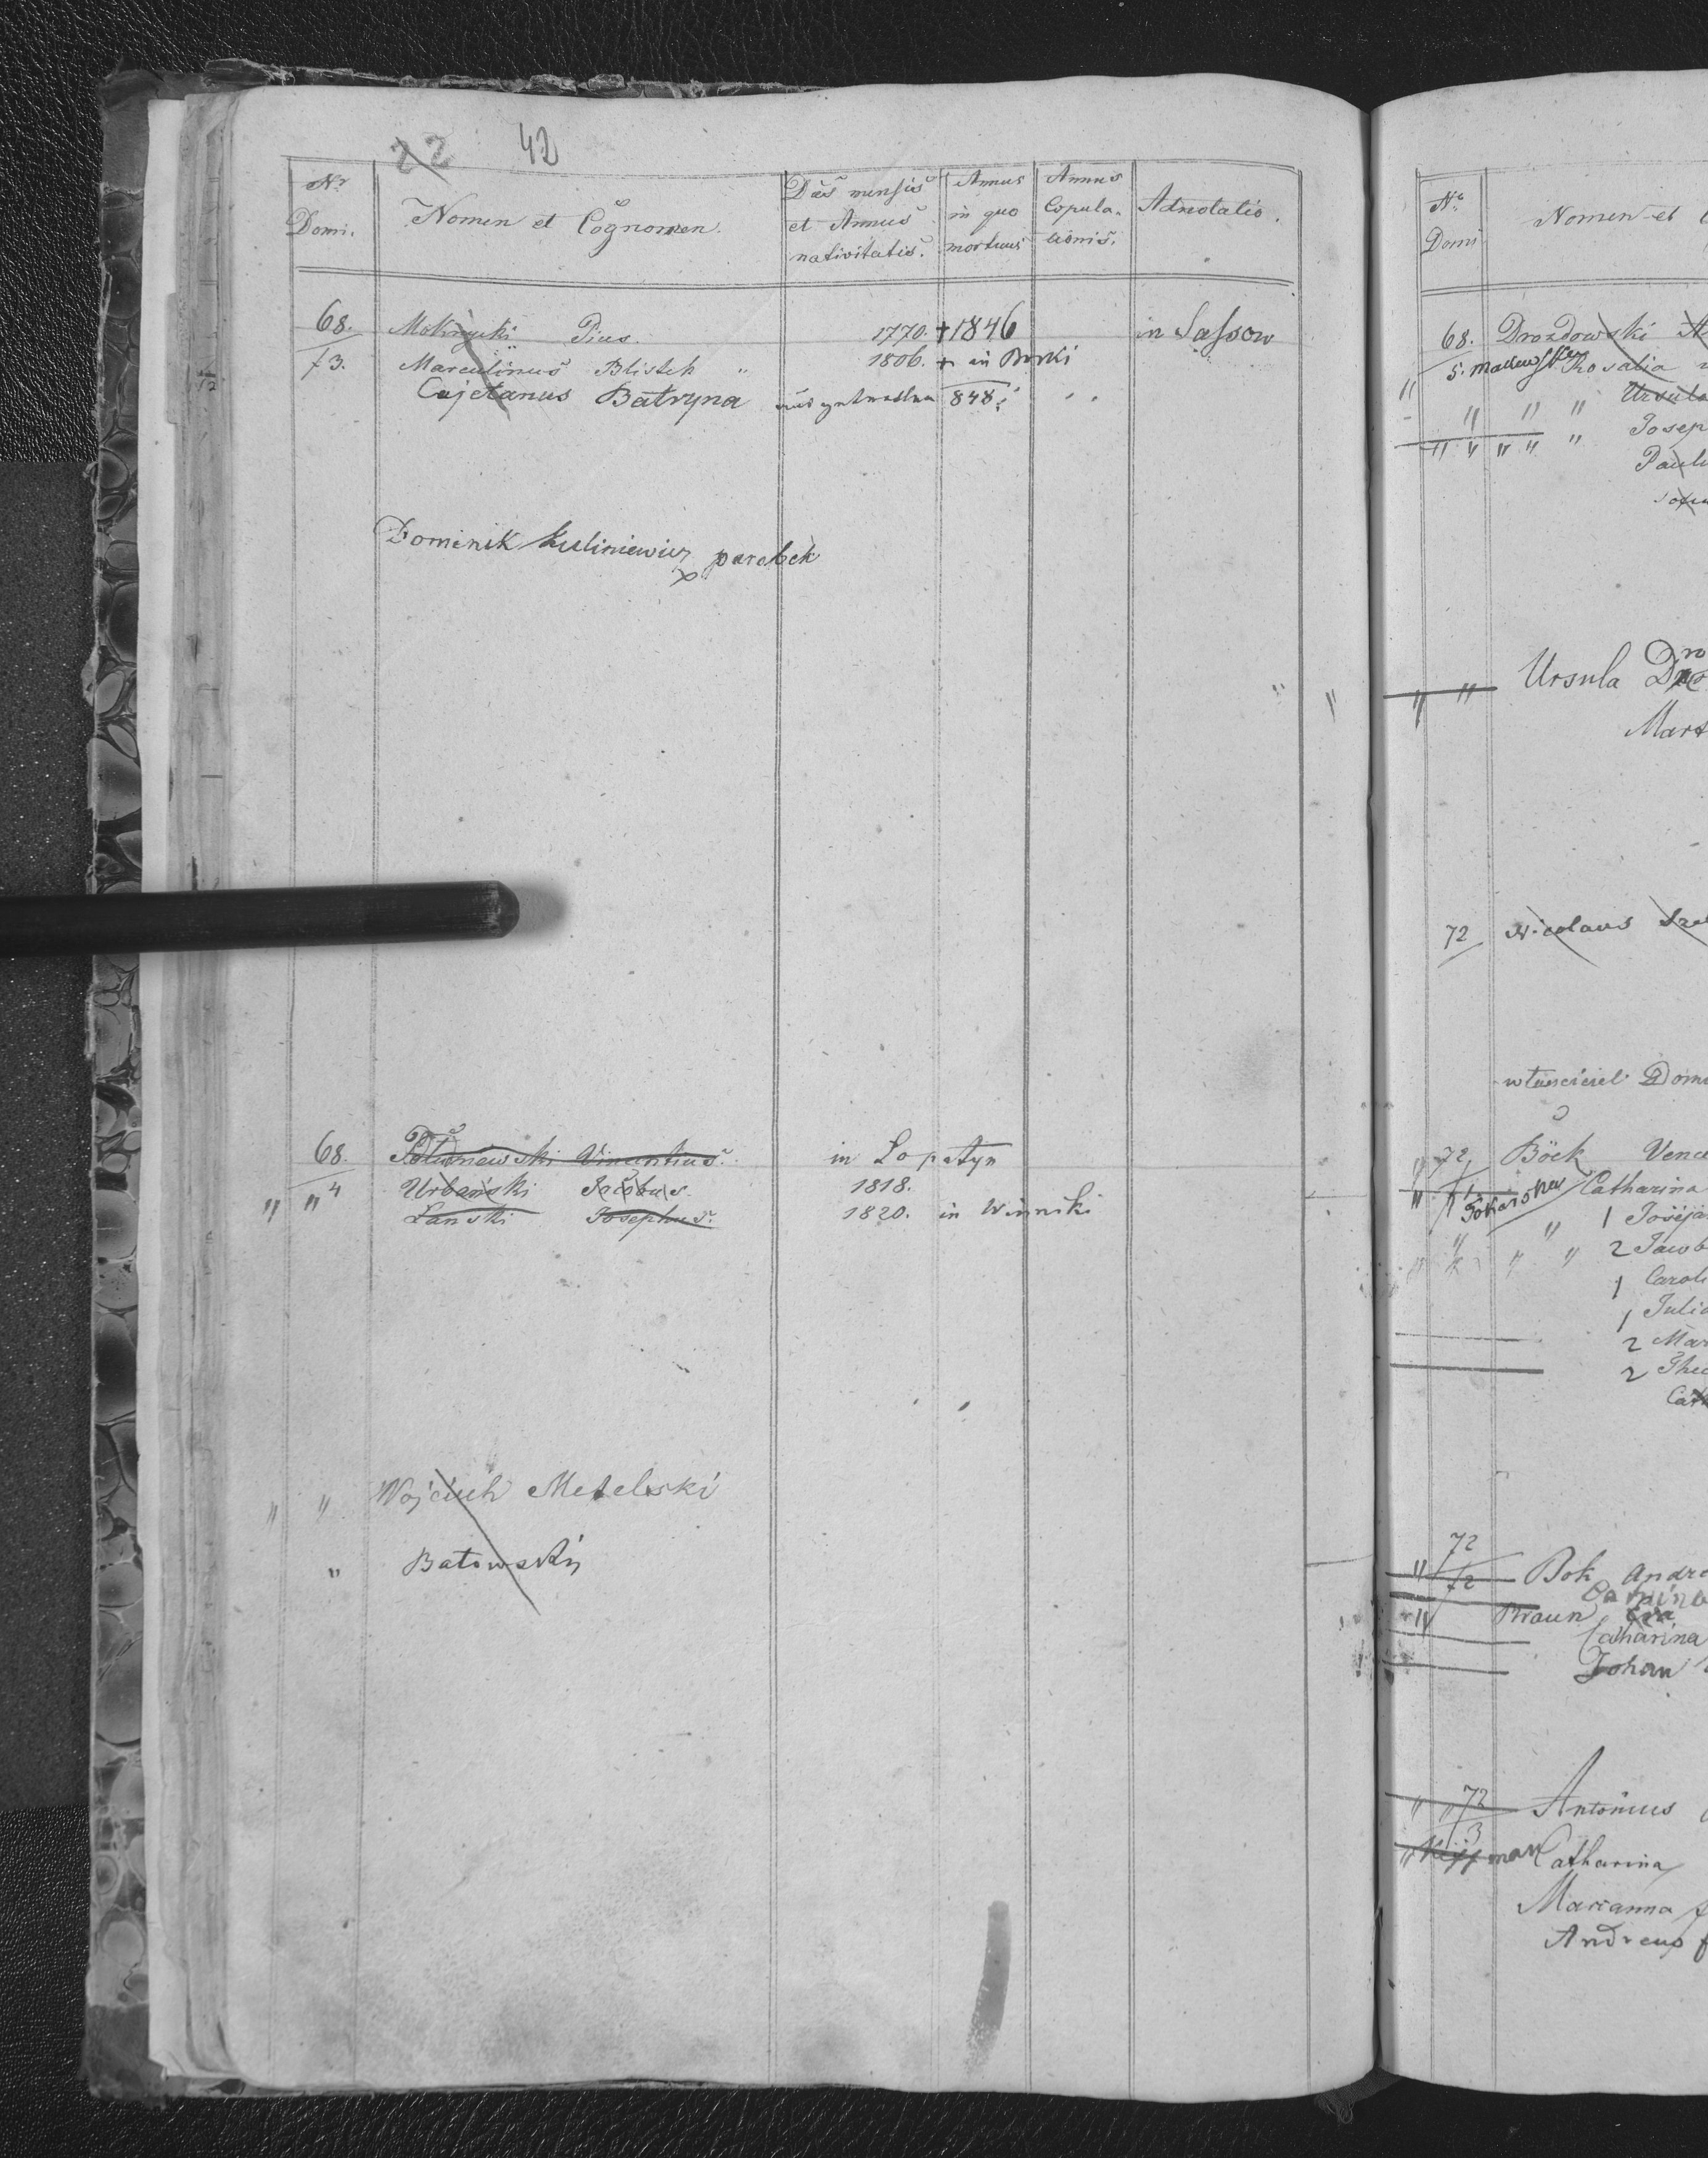 22 42
Nr Domi. Nomen et Cognomen. Dies mensis et Annus nativitatis. Annus in quo mortuus Annus Copulationis. Adnotatio.
68. Mokrzycki Pius. 1770. +1846 in Sassow
/3. Marcelinus Blistek " 1806. + in Borki
Cajetanus Batryna 848
Dominik Kuliniewicz parobek
68. Vincentius. in Lopatyn
" " 4 Urbański Jacobus. 1818.
Łanski Josephus. 1820. in Winniki
" " Wojciech Metelski
" Batowski
No Domi Nomen et
68. Drozdowski
5. Rosalia
" Ursula
" " " "
" " " " " Josep
Paul
" " Ursula Dro
Mart
72 Nicolaus
własciciel Dom
" 72 Böck Vence
" /1 Tokarska Catharina
" " 1 Josepa
" " " " 2 Jacob
1 Caroli
1 Julia
2 Mar
2 The
Cat
72
" /2 Bok Andre
" Braun Eva
Catharina
Johan
" " 72 Antonius
3
" Catharina
Marianna
Andreas